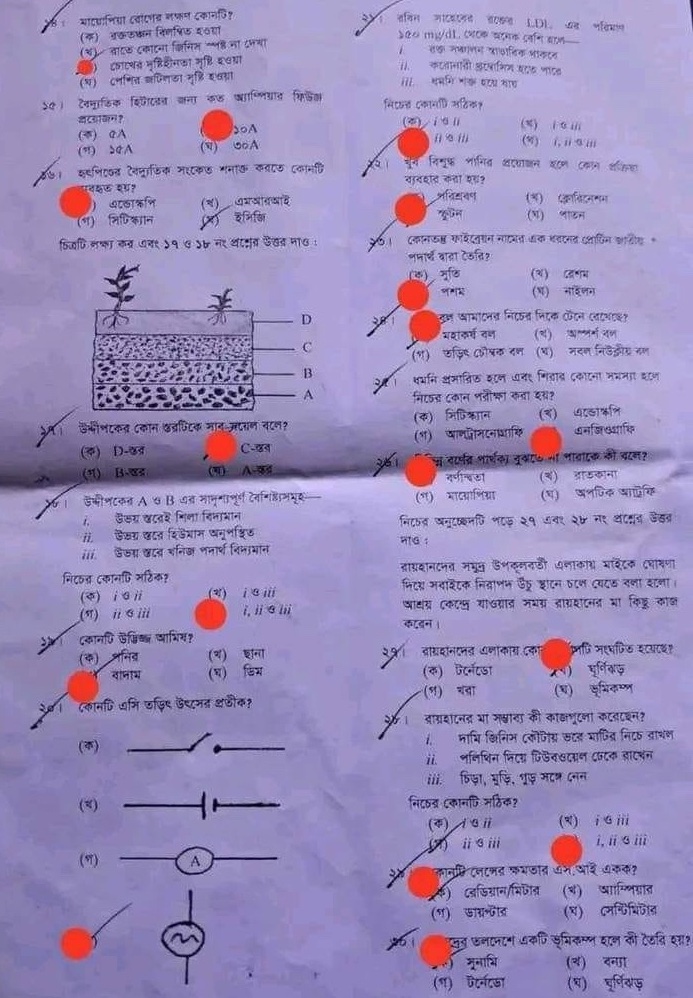 ১৪। মায়োপিয়া রোগের লক্ষণ কোনটি?
(ক) রক্তক্ষরণ বিলম্বিত হওয়া
(খ) রাতে কোনো জিনিস স্পষ্ট না দেখা
চোখের দৃষ্টিহীনতা সৃষ্টি হওয়া
(ঘ) পেশির জটিলতা সৃষ্টি হওয়া
১৫। বৈদ্যুতিক হিটারের জন্য কত অ্যাম্পিয়ার ফিউজ
প্রয়োজন?
(ক) ৫A ১০A
(গ) ১৫A (ঘ) ৩০A
১৬। হৃৎপিণ্ডের বৈদ্যুতিক সংকেত শনাক্ত করতে কোনটি
ব্যবহৃত হয়?
এন্ডোস্কপি (খ) এমআরআই
(গ) সিটিস্ক্যান (ঘ) ইসিজি
চিত্রটি লক্ষ্য কর এবং ১৭ ও ১৮ নং প্রশ্নের উত্তর দাও :
D
C
B
A
১৭। উদ্দীপকের কোন স্তরটিকে সাব-সয়েল বলে?
(ক) D-স্তর C-স্তর
(গ) B-স্তর (ঘ) A-স্তর
১৮। উদ্দীপকের A ও B এর সাদৃশ্যপূর্ণ বৈশিষ্ট্যসমূহ—
i. উভয় স্তরেই শিলা বিদ্যমান
ii. উভয় স্তরে হিউমাস অনুপস্থিত
iii. উভয় স্তরে খনিজ পদার্থ বিদ্যমান
নিচের কোনটি সঠিক?
(ক) i ও ii (খ) i ও iii
(গ) ii ও iii i, ii ও iii
১৯। কোনটি উদ্ভিজ্জ আমিষ?
(ক) পনির (খ) ছানা
বাদাম (ঘ) ডিম
২০। কোনটি এসি তড়িৎ উৎসের প্রতীক?
(ক)
(খ)
(গ) A
২১। রবিন সাহেবের রক্তের LDL এর পরিমাণ
১৫০ mg/dL থেকে অনেক বেশি হলে—
i. রক্ত সঞ্চালন স্বাভাবিক থাকবে
ii. করোনারী থ্রম্বোসিস হতে পারে
iii. ধমনি শক্ত হয়ে যায়
নিচের কোনটি সঠিক?
(ক) i ও ii (খ) i ও iii
ii ও iii (ঘ) i, ii ও iii
২২। খুব বিশুদ্ধ পানির প্রয়োজন হলে কোন প্রক্রিয়া
ব্যবহার করা হয়?
পরিস্রবণ (খ) ক্লোরিনেশন
স্ফুটন (ঘ) পাতন
২৩। কোনতন্তু ফাইব্রেয়ন নামের এক ধরনের প্রোটিন জাতীয়
পদার্থ দ্বারা তৈরি?
(ক) সুতি (খ) রেশম
পশম (ঘ) নাইলন
২৪। বল আমাদের নিচের দিকে টেনে রেখেছে?
মহাকর্ষ বল (খ) অস্পর্শ বল
(গ) তড়িৎ চৌম্বক বল (ঘ) সবল নিউক্লীয় বল
২৫। ধমনি প্রসারিত হলে এবং শিরার কোনো সমস্যা হলে
নিচের কোন পরীক্ষা করা হয়?
(ক) সিটিস্ক্যান (খ) এন্ডোস্কপি
(গ) আলট্রাসনোগ্রাফি এনজিওগ্রাফি
২৬। বর্ণের পার্থক্য বুঝতে না পারাকে কী বলে?
বর্ণান্ধতা (খ) রাতকানা
(গ) মায়োপিয়া (ঘ) অপটিক অ্যাট্রফি
নিচের অনুচ্ছেদটি পড়ে ২৭ এবং ২৮ নং প্রশ্নের উত্তর
দাও :
রায়হানদের সমুদ্র উপকূলবর্তী এলাকায় মাইকে ঘোষণা
দিয়ে সবাইকে নিরাপদ উঁচু স্থানে চলে যেতে বলা হলো।
আশ্রয় কেন্দ্রে যাওয়ার সময় রায়হানের মা কিছু কাজ
করেন।
২৭। রায়হানদের এলাকায় কোন সংঘটিত হয়েছে?
(ক) টর্নেডো (খ) ঘূর্ণিঝড়
(গ) খরা (ঘ) ভূমিকম্প
২৮। রায়হানের মা সম্ভাব্য কী কাজগুলো করেছেন?
i. দামি জিনিস কৌটায় ভরে মাটির নিচে রাখেন
ii. পলিথিন দিয়ে টিউবওয়েল ঢেকে রাখেন
iii. চিড়া, মুড়ি, গুড় সঙ্গে নেন
নিচের কোনটি সঠিক?
(ক) i ও ii (খ) i ও iii
(গ) ii ও iii i, ii ও iii
২৯। কোনটি লেন্সের ক্ষমতার এস.আই একক?
(ক) রেডিয়ান/মিটার (খ) অ্যাম্পিয়ার
(গ) ডায়প্টার (ঘ) সেন্টিমিটার
৩০। তলদেশে একটি ভূমিকম্প হলে কী তৈরি হয়?
সুনামি (খ) বন্যা
(গ) টর্নেডো (ঘ) ঘূর্ণিঝড়